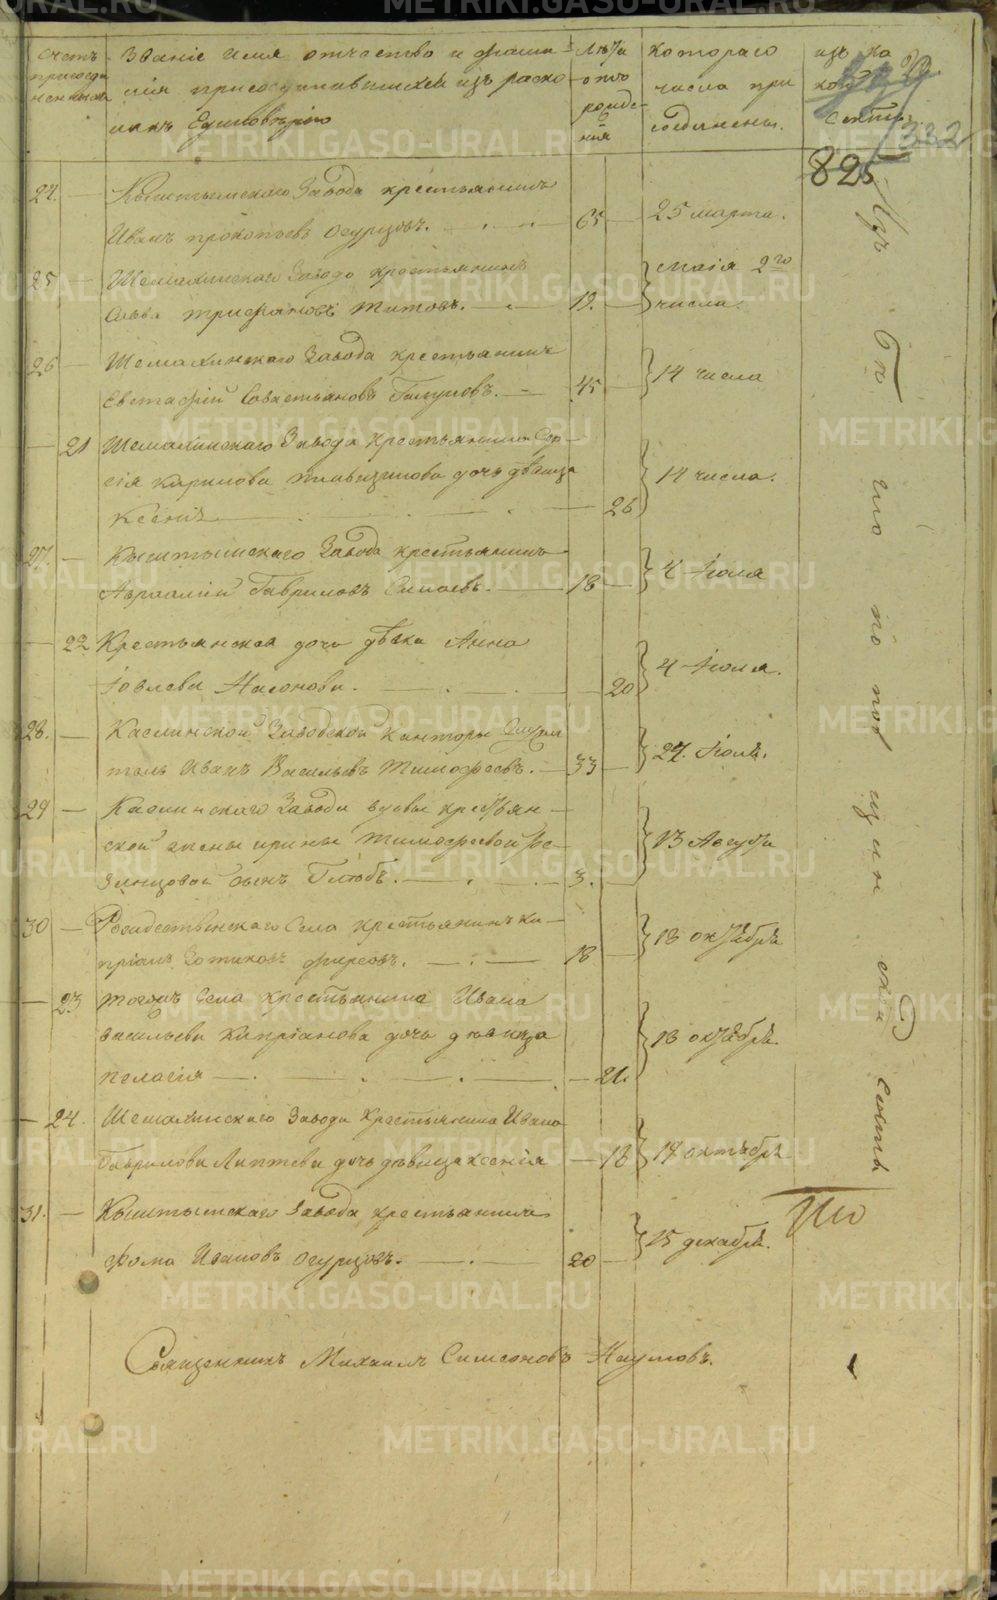 Счетъ присоединенныхъ
Званіе имя отчество и фами-
лія присоединившихся изъ раско-
ла къ Единоверію
Лѣта
отъ
рожде-
нія
котораго
числа при
соединены.
изъ ка
кой
секты
332
825
24. — Кыштымскаго Завода крестьянинъ
Иванъ прокопьевъ Огурцовъ. 65 — 25 марта.
25 — Шемахинскаго Завода крестьянинъ
Савва трифановъ Титовъ. 19. — маія 2го
числа.
26 — Шемахинскаго Завода крестьянинъ
Евстафій Савастьяновъ 45 — 14 числа
— 21 Шемахинскаго Завода крестьянина Сер-
гія Кирилова дочь дѣвица
Ксенія — 26 14 числа.
27. — Кыштымскаго Завода крестьянинъ
Авраамій Гавриловъ 18 — 4 Іюля
— 22 Крестьянская дочь дѣвка Анна
Іовлева Насонова. — 20 4 Іюля.
28. — Каслинской Заводской Канторы Служи
тель Иванъ Васильевъ Тимофеевъ. — 33 — 27. Іюля.
29 — Каслинскаго Завода вдовы крестьян-
ской жены ирины Тимофеевой
сынъ Глѣбъ. — 3. — 13 Августа
30 — Рождественскаго Села крестьянинъ ки-
пріянъ Зотиковъ фирсовъ. — 18 — 18 октября
— 23 тогожъ Села крестьянина Ивана
васильева Кипріанова дочь дѣвица
пелагія — 21. 18 октября.
— 24. Шемахинскаго Завода Крестьянина Ивана
Гаврилова Лаптева дочь дѣвица ксенія — 18 19 октября
31. — Кыштымскаго Завода крестьянинъ
Фома Ивановъ Огурцовъ. — 20 — 15 декабря.
Изъ Бѣ гло по пов щин ска Секты
Священникъ Михаилъ Симеоновъ Наумовъ.
METRIKI.GASO-URAL.RU